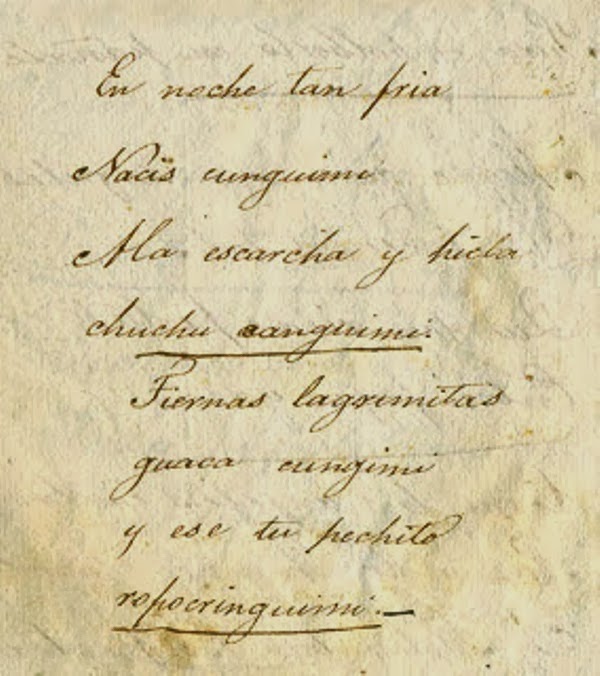 En noche tan fria
Nacis cunguimi
Ala escarcha y hiela
chuchu canguimi.
Tiernas lagrimitas
guaca cungimi
y ese tu pechito
ropocringuimi.—